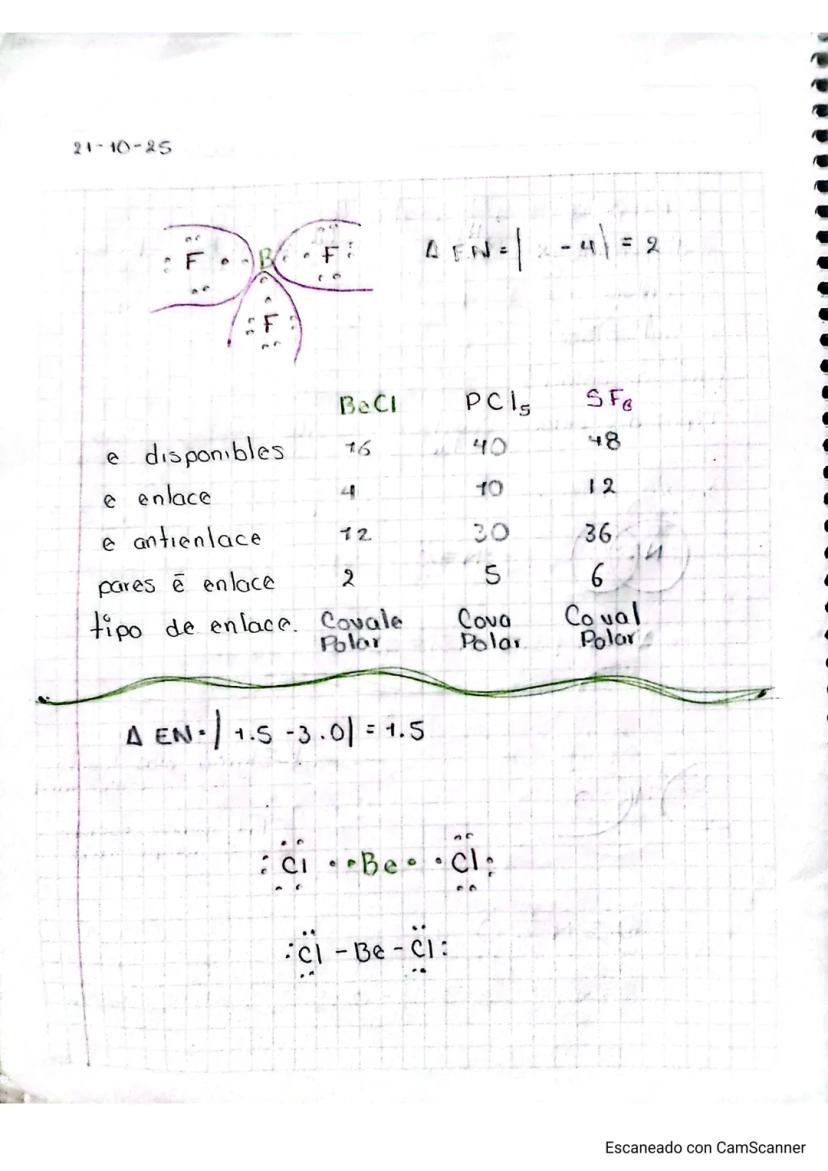 21-10-25
F B F
F
Δ EN = | - 4| = 2
BeCl PCl₅ SF₆
e disponibles 16 40 48
e enlace 4 10 12
e antienlace 12 30 36
pares ē enlace 2 5 6
tipo de enlace. Covale Polar Cova Polar Coval Polar
Δ EN = | 1.5 - 3.0| = 1.5
:Cl · · Be · · Cl:
:Cl - Be - Cl:
Escaneado con CamScanner